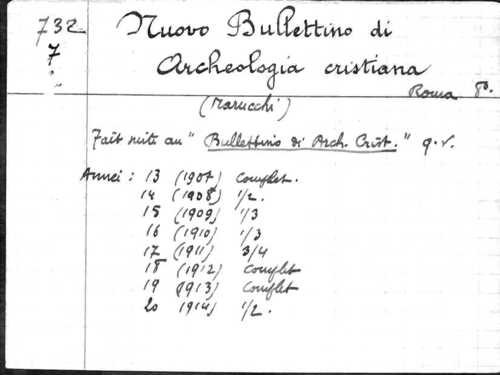 732
7
Nuovo Bullettino di
Archeologia cristiana
Roma 8°.
(Marucchi)
Fait suite au "Bullettino di Arch. Crist." q.v.
Annei : 13 (1907) complet.
14 (1908) 1/2.
15 (1909) 1/3
16 (1910) 1/3
17 (1911) 3/4
18 (1912) complet
19 (1913) complet
20 1914) 1/2.